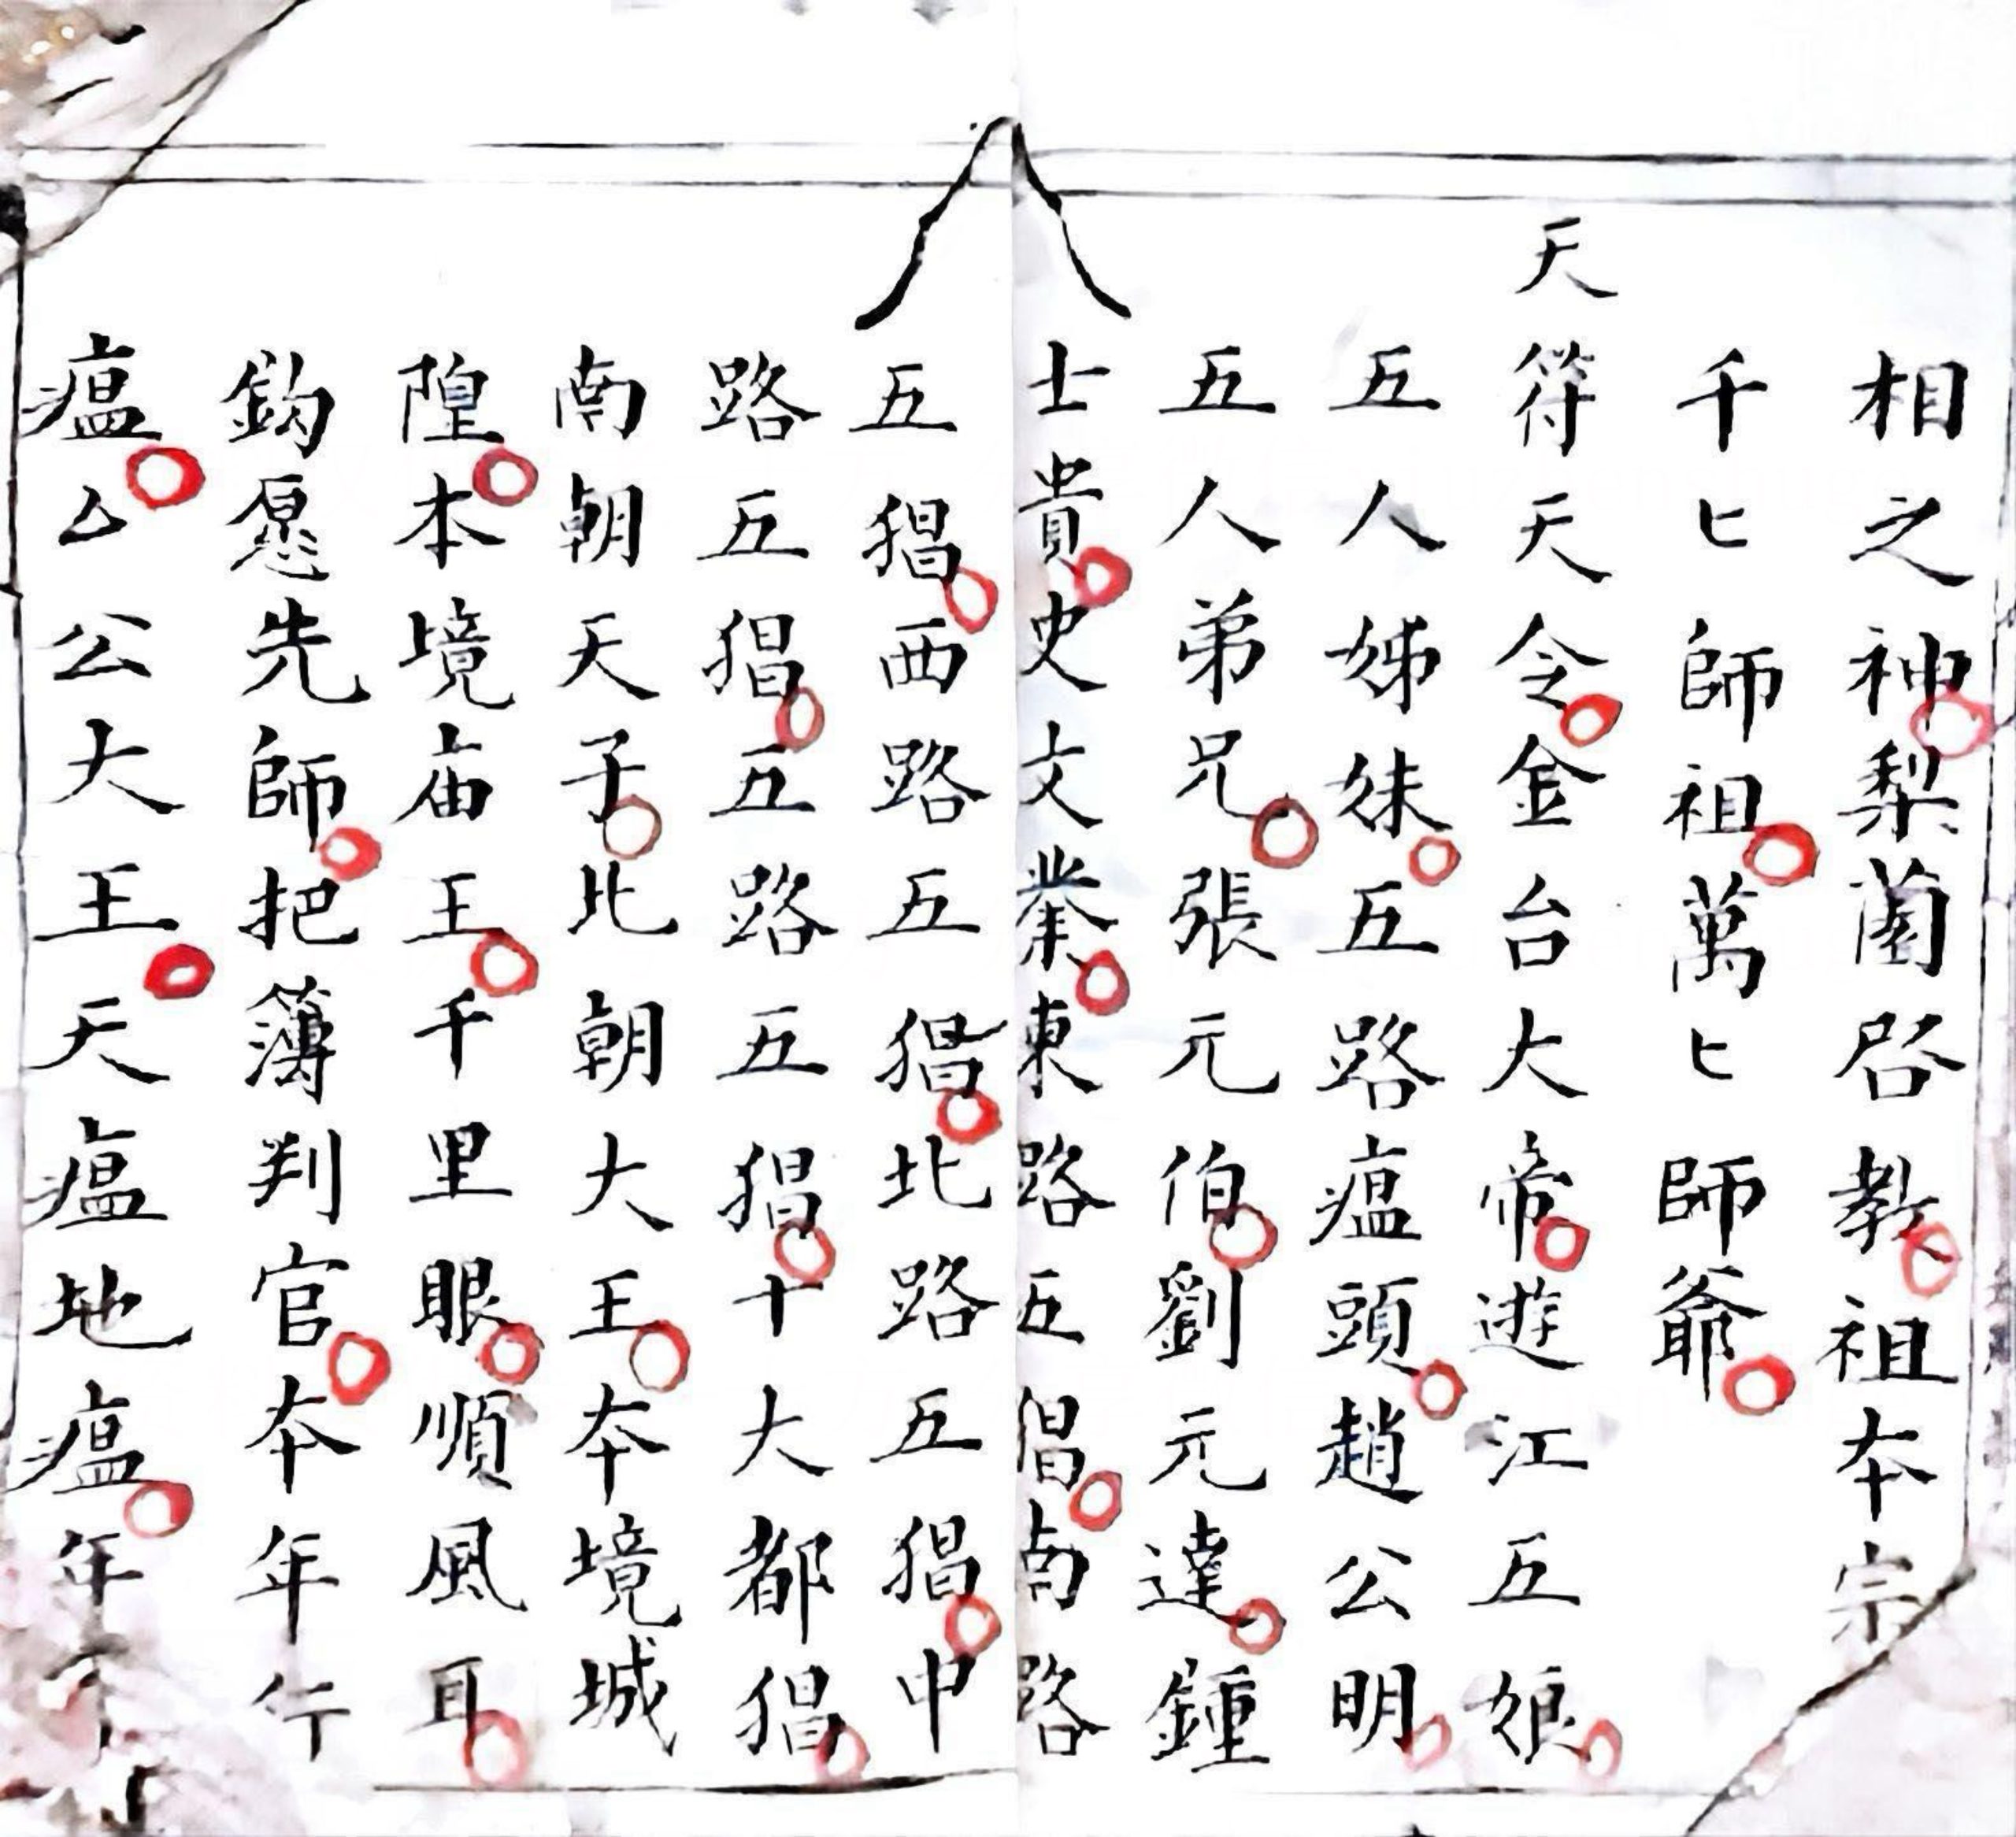 相之神梨蘭启教祖本宗
千匕師祖萬匕師爺
天符天令金台大帝遊江五娘
五人姊妹五路瘟頭趙公明
五人弟兄張元伯劉元達鍾
士貴史文業東路五猖南路
五猖西路五猖北路五猖中
路五猖五路五猖十大都猖
南朝天子北朝大王本境城
隍本境庙王千里眼順風耳
鈎愿先師把簿判官本年行
瘟厶公大王天瘟地瘟年